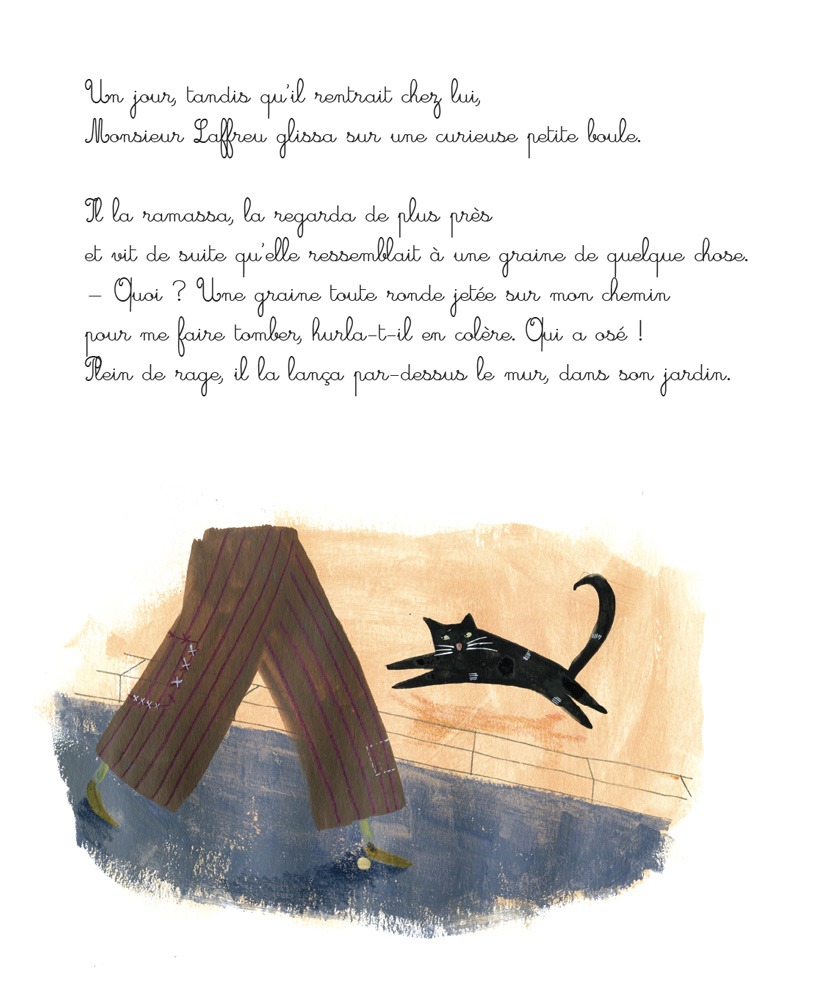 Un jour, tandis qu'il rentrait chez lui,
Monsieur Laffreu glissa sur une curieuse petite boule.
Il la ramassa, la regarda de plus près
et vit de suite qu'elle ressemblait à une graine de quelque chose.
– Quoi ? Une graine toute ronde jetée sur mon chemin
pour me faire tomber, hurla-t-il en colère. Qui a osé !
Plein de rage, il la lança par-dessus le mur, dans son jardin.